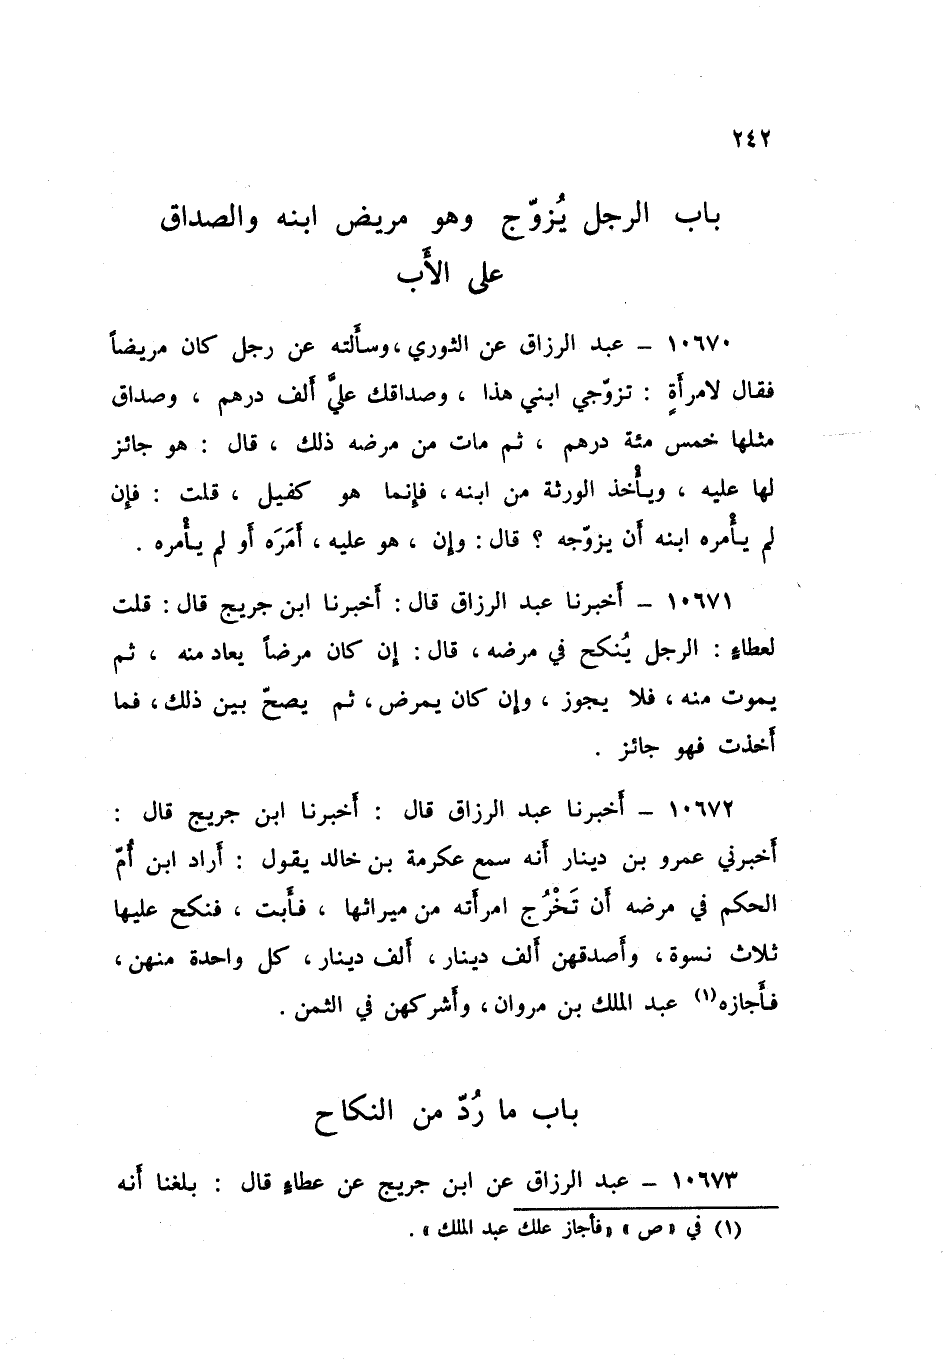 ٢٤٢
باب الرجل يُزوّج وهو مريض ابنه والصداق
على الأَب
١٠٦٧٠ - عبد الرزاق عن الثوري ، وسأَلته عن رجل كان مريضاً
فقال لامرأَةٍ : تزوّجي ابني هذا ، وصداقك عليَّ أَلف درهم ، وصداق
مثلها خمس مئة درهم ، ثم مات من مرضه ذلك ، قال : هو جائز
لها عليه ، ويأْخذ الورثة من ابنه ، فإنما هو كفيل ، قلت : فإن
لم يأْمره ابنه أَن يزوّجه ؟ قال : وإن ، هو عليه ، أَمَرَه أَو لم يأْمره .
١٠٦٧١ - أَخبرنا عبد الرزاق قال : أَخبرنا ابن جريج قال : قلت
لعطاءٍ : الرجل يُنكح في مرضه ، قال : إن كان مرضاً يعاد منه ، ثم
يموت منه ، فلا يجوز ، وإن كان يمرض ، ثم يصحّ بين ذلك ، فما
أَخذت فهو جائز .
١٠٦٧٢ - أَخبرنا عبد الرزاق قال : أَخبرنا ابن جريج قال :
أَخبرني عمرو بن دينار أَنه سمع عكرمة بن خالد يقول : أَراد ابن أُمّ
الحكم في مرضه أَن تَخْرُج امرأَته من ميراثها ، فأَبت ، فنكح عليها
ثلاث نسوة ، وأَصدقهن أَلف دينار ، أَلف دينار ، كل واحدة منهن ،
فأَجازه (١) عبد الملك بن مروان ، وأَشركهن في الثمن .
باب ما رُدّ من النكاح
١٠٦٧٣ - عبد الرزاق عن ابن جريج عن عطاءٍ قال : بلغنا أَنه
(١) في « ص » « فأجاز علك عبد الملك » .